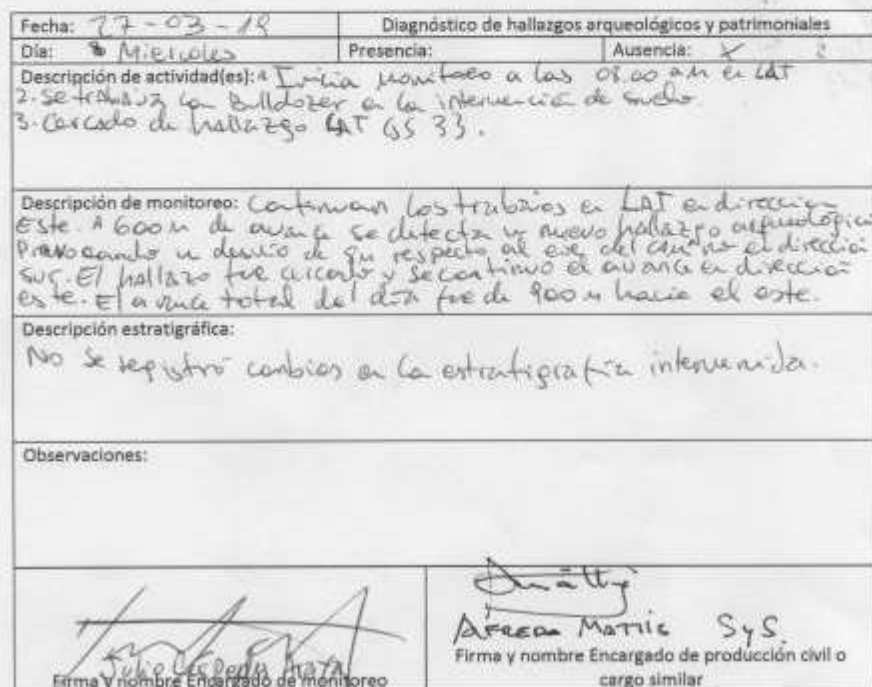 Fecha: 27-03-19 Diagnóstico de hallazgos arqueológicos y patrimoniales
Día: Miercoles Presencia: Ausencia: X
Descripción de actividad(es): 1 Inicia monitoreo a las 08.00 am en LAT
2. Se trabaja con Bulldozer en la intervención de suelo.
3. Cercado de hallazgo LAT GS 33.
Descripción de monitoreo: Continuan los trabajos en LAT en direccion
Este. A 600 m de avance se detecta un nuevo hallazgo arqueológico
Provocando un desvio de 9m respecto al eje del camino en dirección
sur. El hallazgo fue cercado y se continuo el avance en dirección
este. El avance total del día fue de 900 m hacia el este.
Descripción estratigráfica:
No se registró cambios en la estratigrafía intervenida.
Observaciones:
Julio Arata
Firma y nombre Encargado de monitoreo
SyS.
Firma y nombre Encargado de producción civil o
cargo similar